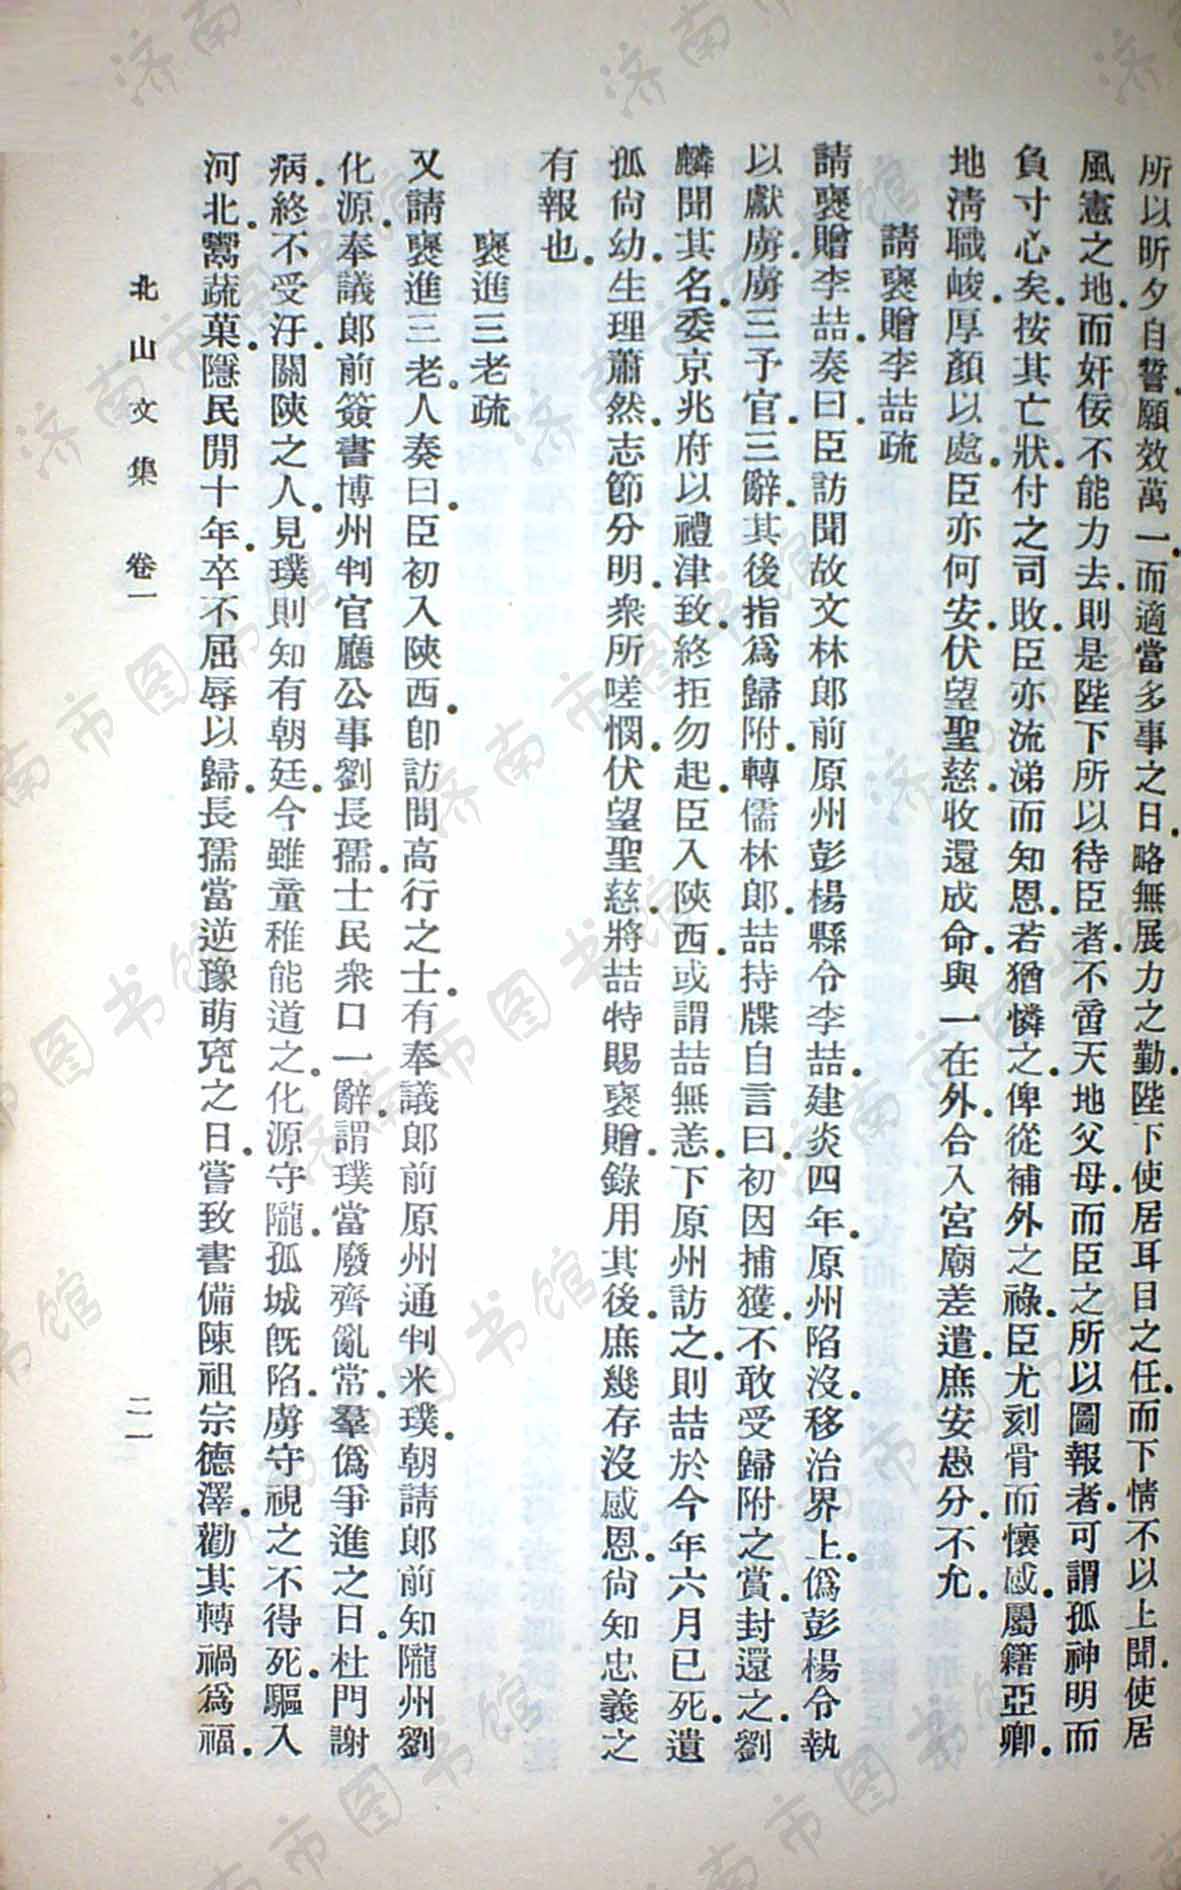 所以昕夕自誓願效萬一而適當多事之日略無展力之勤陛下使居耳目之任而下情不以上聞使居
風憲之地而奸佞不能力去則是陛下所以待臣者不啻天地父母而臣之所以圖報者可謂孤神明而
負寸心矣按其亡狀付之司敗臣亦流涕而知恩若猶憐之俾從補外之祿臣尤刻骨而懷感屬籍亞卿
地清職峻厚顏以處臣亦何安伏望聖慈收還成命與一在外合入宮廟差遣庶安愚分不允
請襃贈李喆疏
請襃贈李喆奏曰臣訪聞故文林郎前原州彭楊縣令李喆建炎四年原州陷沒移治界上僞彭楊令執
以獻虜虜三予官三辭其後指爲歸附轉儒林郎喆持牒自言曰初因捕獲不敢受歸附之賞封還之劉
麟聞其名委京兆府以禮津致終拒勿起臣入陝西或謂喆無恙下原州訪之則喆於今年六月已死遺
孤尙幼生理蕭然志節分明衆所嗟憫伏望聖慈將喆特賜襃贈錄用其後庶幾存沒感恩尙知忠義之
有報也
襃進三老疏
又請襃進三老人奏曰臣初入陝西卽訪問高行之士有奉議郎前原州通判米璞朝請郎前知隴州劉
化源奉議郎前簽書博州判官廳公事劉長孺士民衆口一辭謂璞當廢齊亂常羣僞爭進之日杜門謝
病終不受汙關陝之人見璞則知有朝廷今雖童稚能道之化源守隴孤城旣陷虜守視之不得死驅入
河北鬻蔬菓隱民閒十年卒不屈辱以歸長孺當逆豫萌兇之日嘗致書備陳祖宗德澤勸其轉禍爲福
北山文集 卷一
二一
济南市图书馆